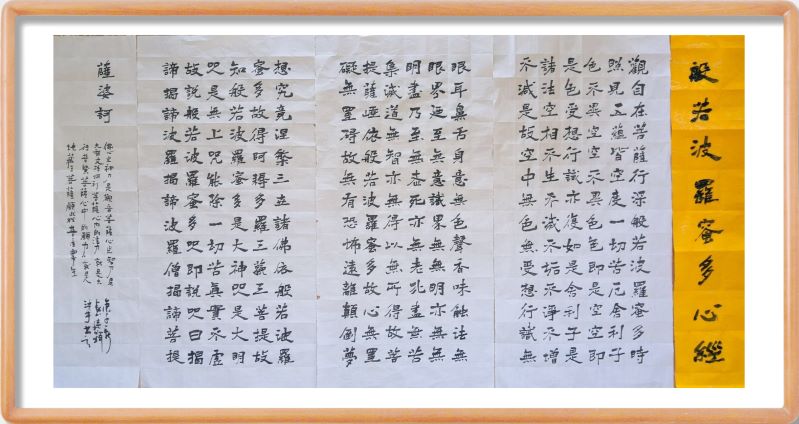 般若波羅蜜多心經
觀自在菩薩行深般若波羅蜜多時
照見五蘊皆空度一切苦厄舍利子
色不異空空不異色色即是空空即
是色受想行識亦復如是舍利子是
諸法空相不生不滅不垢不淨不增
不減是故空中無色無受想行識無
眼耳鼻舌身意無色聲香味觸法無
眼界迺至無意識界無無明亦無無
明盡乃至無老死亦無老死盡無苦
集滅道無智亦無得以無所得故菩
提薩埵依般若波羅蜜多故心無罣
礙無罣礙故無有恐怖遠離顛倒夢
想究竟涅槃三世諸佛依般若波羅
蜜多故得阿耨多羅三藐三菩提故
知般若波羅蜜多是大神咒是大明
咒是無上咒能除一切苦真實不虛
故說般若波羅蜜多咒即說咒曰揭
諦揭諦波羅揭諦波羅僧揭諦菩提
薩婆訶